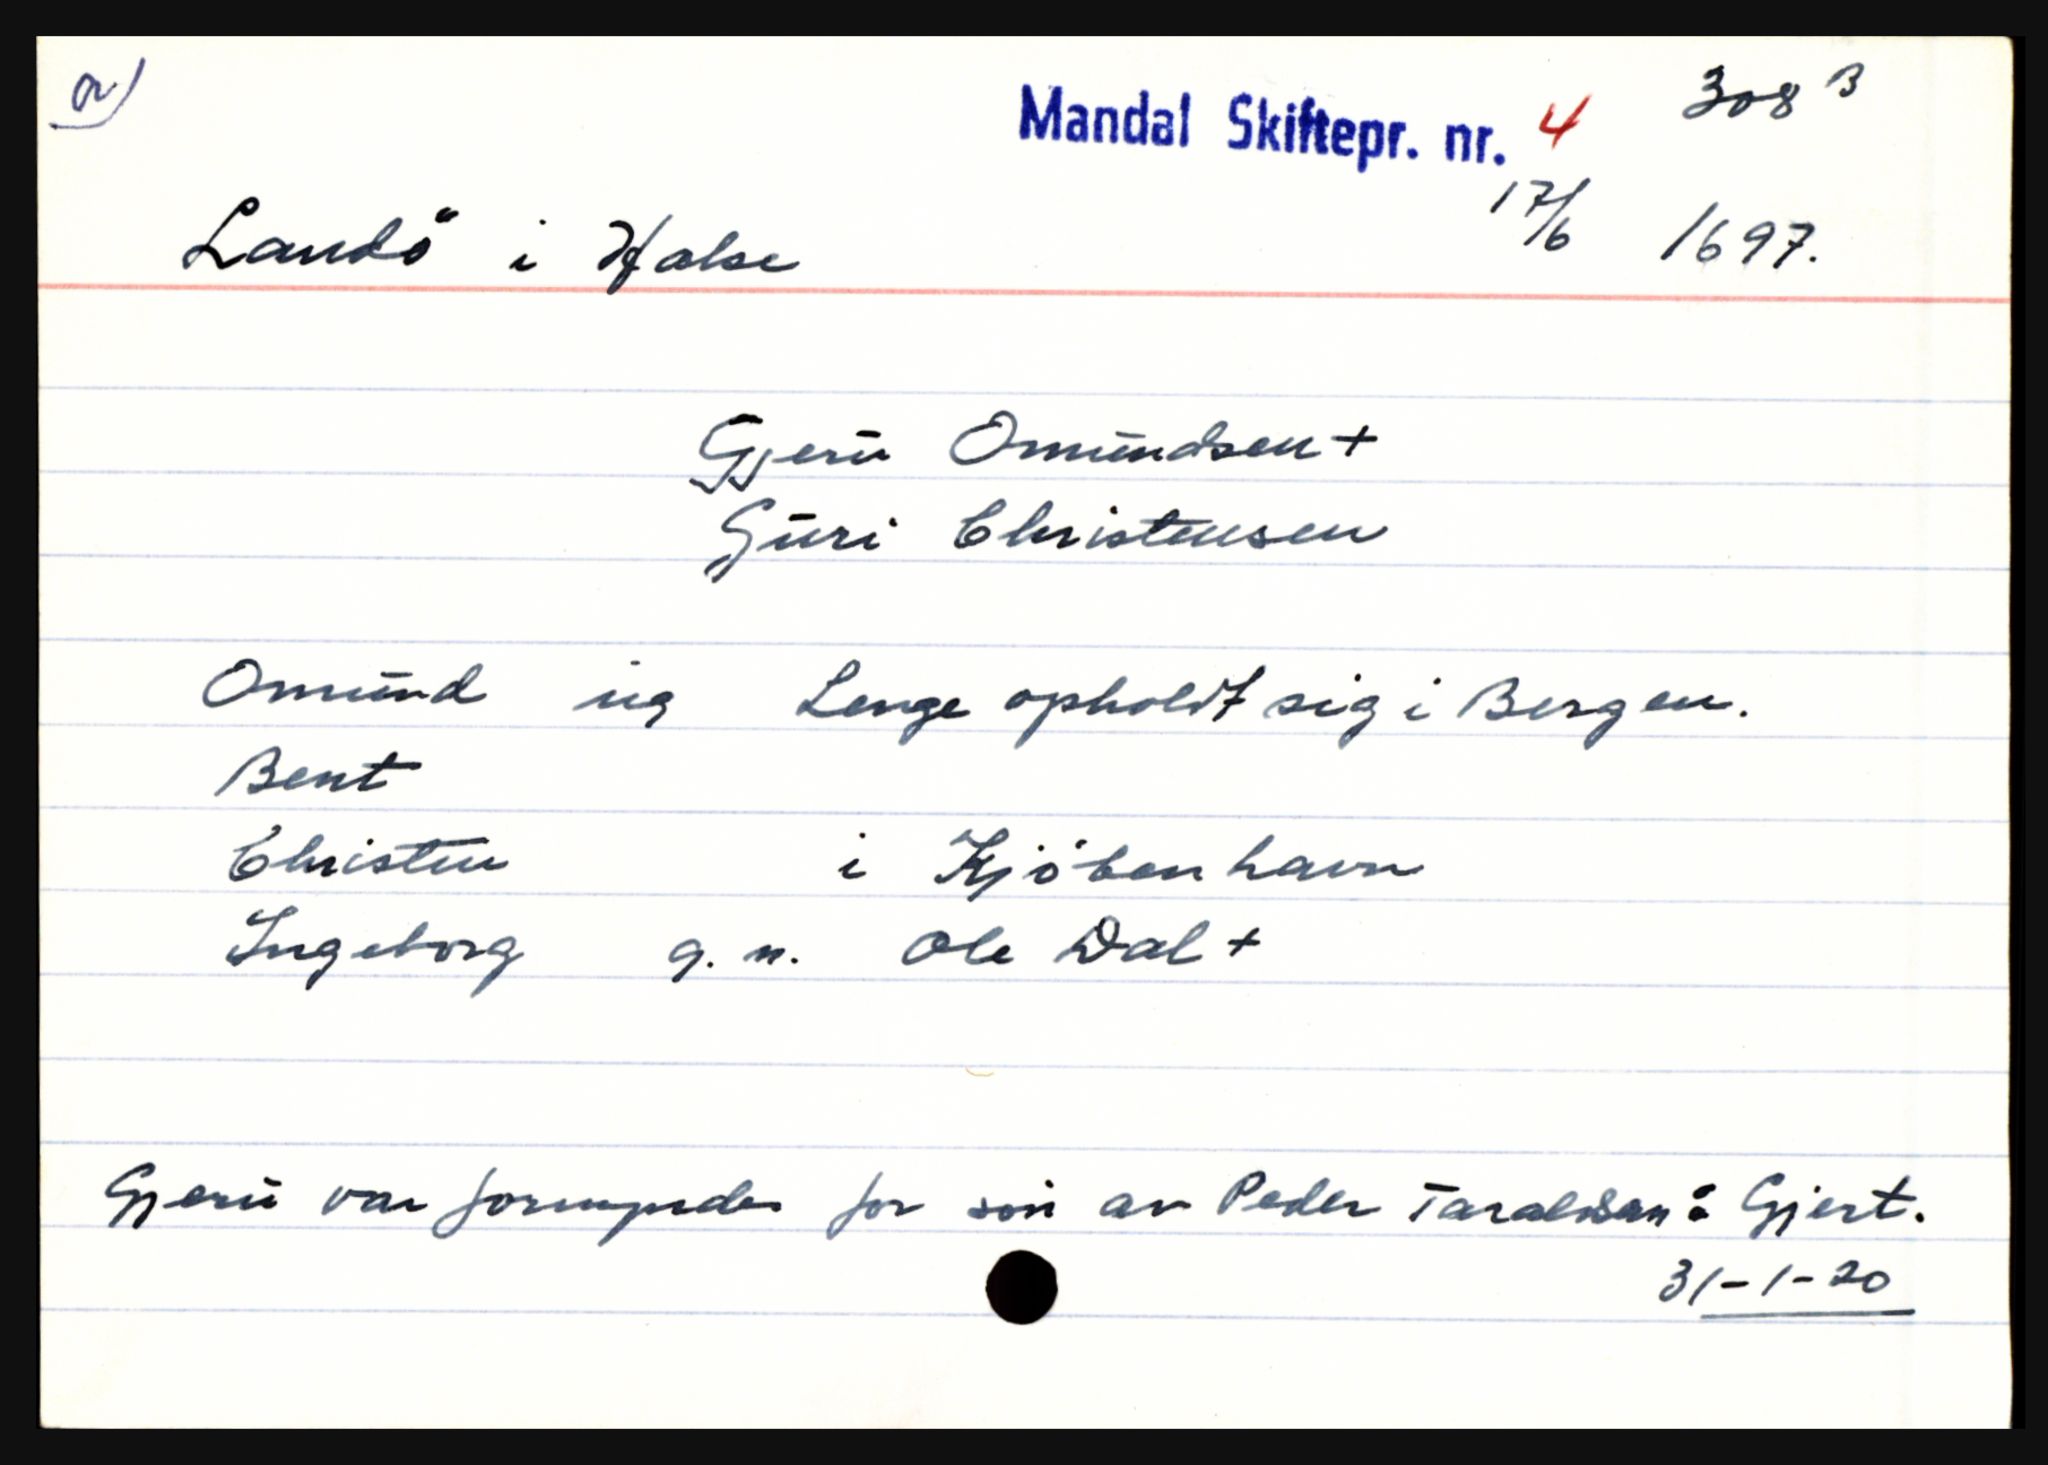 a)
Mandal Skiftepr. nr. 4 308 B
Landö i Halse 17/6 1697.
Gjeru Omundsen +
Guri Christensen
Omund ug Lenge opholdt sig i Bergen.
Bent
Christen i Kjöbenhavn
Ingeborg g. m. Ole Dal +
Gjeru var formynder for sön av Peder Taraldsen: Gjert.
31-1-20